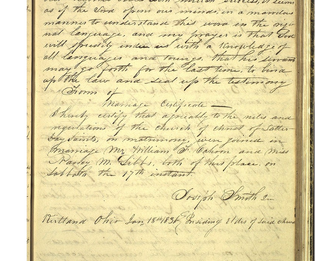 as if the Lord open our minds in a marvelous
manner to understand this word in the orig-
inal language, and my prayer is that God
will speedily endue us with a knowledge of
all languages and tongues that his servants
may go forth for the last time, to bind
up the law and seal up the testimony
Form of
Marriage Certificate—
I hereby certify that agreably to the rules and
regulations of the church of christ of Latter-
Day Saints, on matrimony, were joined in
marriage Mr. William F. Cahoon and Miss
Nancy M. Gibbs, both of this place, on
Sabbath the 17th instant.
Joseph Smith
Kirtland Ohio Jan 18th 1836 Presiding Elder of said church